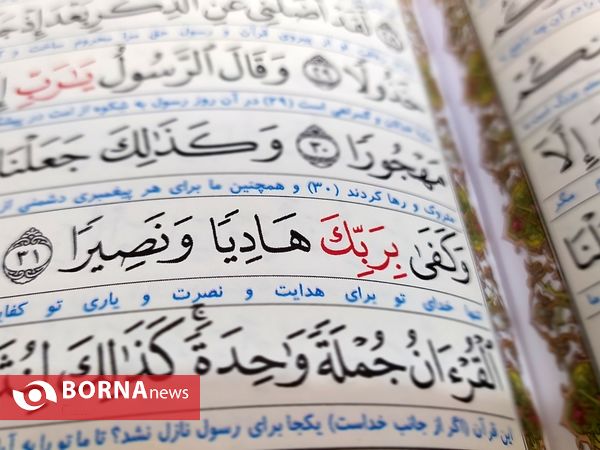 لَقَدْ أَضَلَّنِي عَنِ الذِّكْرِ بَعْدَ إِذْ
خَذُولًا ۲۹ وَقَالَ الرَّسُولُ يَا رَبِّ
(۲۹) در آن روز رسول به شکوه از امت در
مَهْجُورًا ۳۰ وَكَذَٰلِكَ جَعَلْنَا
متروک و رها کردند (۳۰) و همچنین ما برای هر پیغمبری دشمنی از
وَكَفَىٰ بِرَبِّكَ هَادِيًا وَنَصِيرًا ۳۱
تنها خدای تو برای هدایت و نصرت و یاری تو
الْقُرْءَانُ جُمْلَةً وَاحِدَةً ۚ كَذَٰلِكَ
این قرآن (اگر از جانب خداست) یکجا برای رسول نازل نشد؟ تا ما تو را به
إِلَّا
مگر
BORNAnews